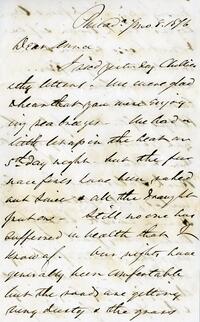 Dear Anna
I rec'd yesterday
letters. We were glad
to hear that you were enjoy
ing sea breezes. We had a
little in the heat on
5th day night but the
have been raked
out since & all the
put on. Still no one has
suffered in health that I
know of. Our nights have
generally been comfortable
but the roads are getting
very dusty & the grass